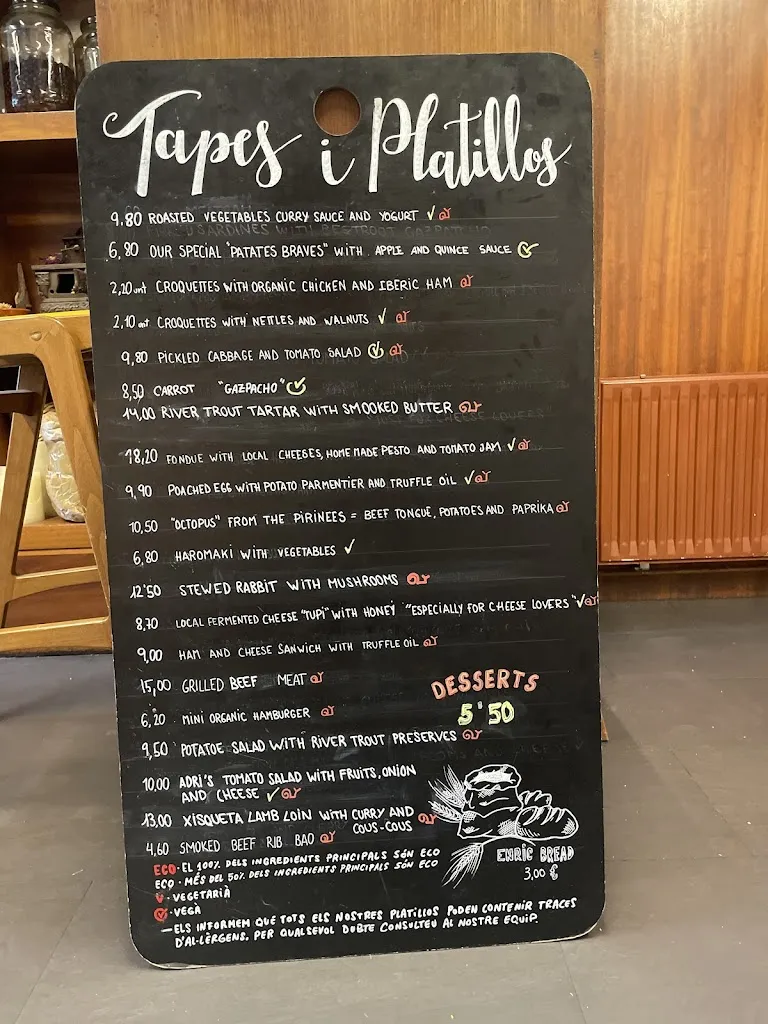 Tapes i Platillos
9,80 ROASTED VEGETABLES CURRY SAUCE AND YOGURT
6,80 OUR SPECIAL "PATATES BRAVES" WITH APPLE AND QUINCE SAUCE
2,20 unt CROQUETTES WITH ORGANIC CHICKEN AND IBERIC HAM
2,10 unt CROQUETTES WITH NETTLES AND WALNUTS
9,80 PICKLED CABBAGE AND TOMATO SALAD
8,50 CARROT "GAZPACHO"
14,00 RIVER TROUT TARTAR WITH SMOOKED BUTTER
18,20 FONDUE WITH LOCAL CHEEGES, HOME MADE PESTO AND TOMATO JAM
9,90 POACHED EGG WITH POTATO PARMENTIER AND TRUFFLE OIL
10,50 "OCTOPUS" FROM THE PIRINEES = BEEF TONGUE, POTATOES AND PAPRIKA
6,80 HAROMAKI WITH VEGETABLES
12'50 STEWED RABBIT WITH MUSHROOMS
8,70 LOCAL FERMENTED CHEESE "TUPI" WITH HONEY "ESPECIALLY FOR CHEESE LOVERS"
9,00 HAM AND CHEESE SANWICH WITH TRUFFLE OIL
15,00 GRILLED BEEF MEAT
6,20 MINI ORGANIC HAMBURGER
9,50 POTATOE SALAD WITH RIVER TROUT PRESERVES
10,00 ADRI'S TOMATO SALAD WITH FRUITS, ONION
AND CHEESE
13,00 XISQUETA LAMB LOIN WITH CURRY AND
COUS-COUS
4,60 SMOKED BEEF RIB BAO
DESSERTS
5'50
ENRIC BREAD
3,00 €
ECO · EL 100% DELS INGREDIENTS PRINCIPALS SÓN ECO
ECO · MÉS DEL 50% DELS INGREDIENTS PRINCIPALS SÓN ECO
V · VEGETARIÀ
V · VEGÀ
— ELS INFORMEM QUE TOTS ELS NOSTRES PLATILLOS PODEN CONTENIR TRACES
D'AL·LÈRGENS. PER QUALSEVOL DUBTE CONSULTEU AL NOSTRE EQUIP.